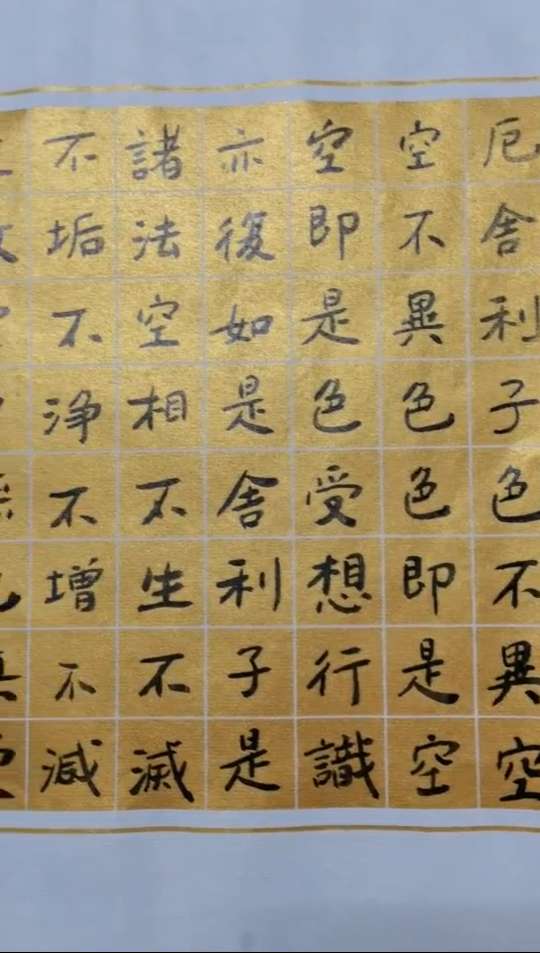 厄舍利子色不異空
空不異色色即是空
空即是色受想行識
亦復如是舍利子是
諸法空相不生不滅
不垢不淨不增不減